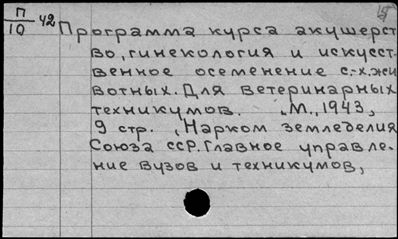 П
10
42
Программа курса акушерст
во, гинекология и искусст-
венное осеменение с.-х. жи
вотных. Для ветеринарных
техникумов. М., 1943,
9 стр. , Нарком земледелия
Союза ССР. Главное управле-
ние вузов и техникумов,